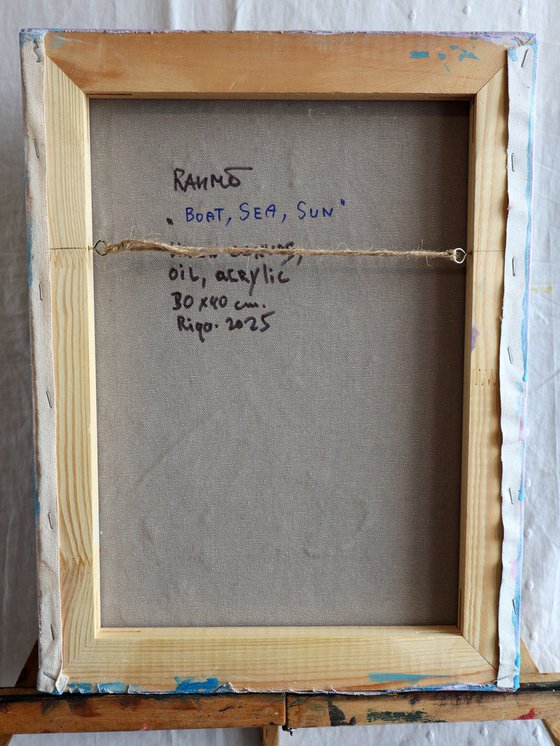 RAHMĒT
"BOAT, SEA, SUN"
OIL, ACRYLIC
30 x 40 cm.
Riga. 2025